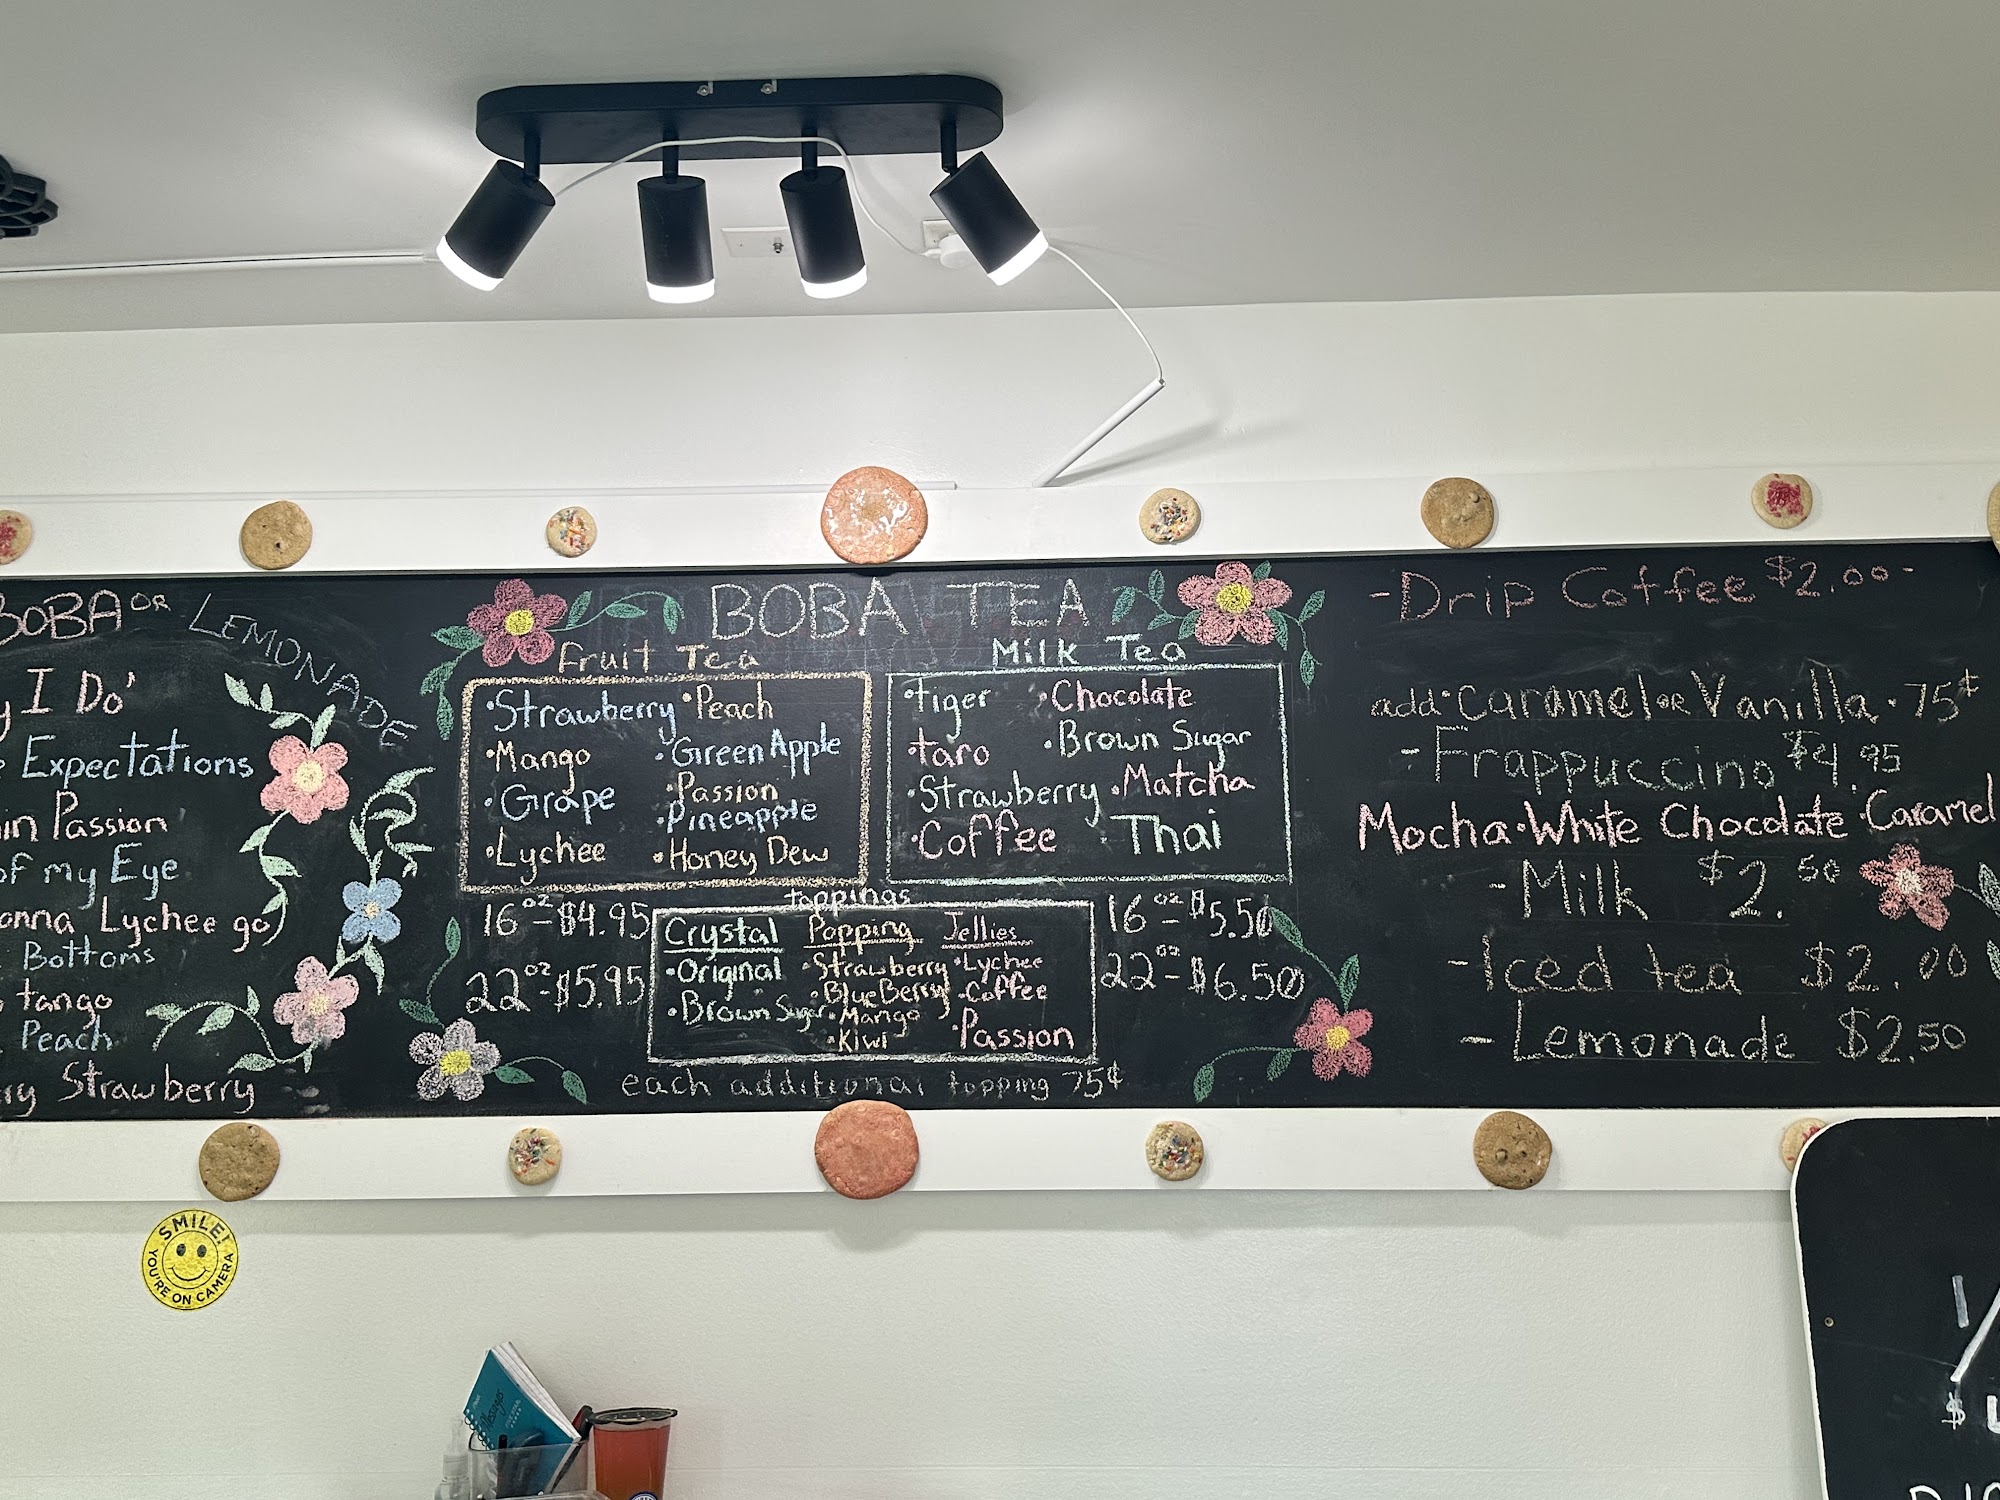 BOBA OR LEMONADE
I Do'
Expectations
in Passion
of my Eye
onna Lychee go)
Bottoms
tango
Peach
ry Strawberry
BOBA TEA
Fruit Tea
•Strawberry •Peach
•Mango •Green Apple
•Grape •Passion
•Pineapple
•Lychee •Honey Dew
16oz-$4.95
22oz-$5.95
Milk Tea
•Tiger •Chocolate
•taro •Brown Sugar
•Strawberry •Matcha
•Coffee •Thai
16oz-$5.50
22oz-$6.50
toppings
Crystal Popping Jellies
•Original •Strawberry •Lychee
•Brown Sugar •BlueBerry •Coffee
•Mango •Passion
•Kiwi
each additional topping 75¢
-Drip Coffee $2.00-
add•Caramel or Vanilla•75¢
-Frappuccino $4.95
Mocha•White Chocolate•Caramel
-Milk $2.50
-Iced tea $2.00
-Lemonade $2.50
SMILE!
YOU'RE ON CAMERA